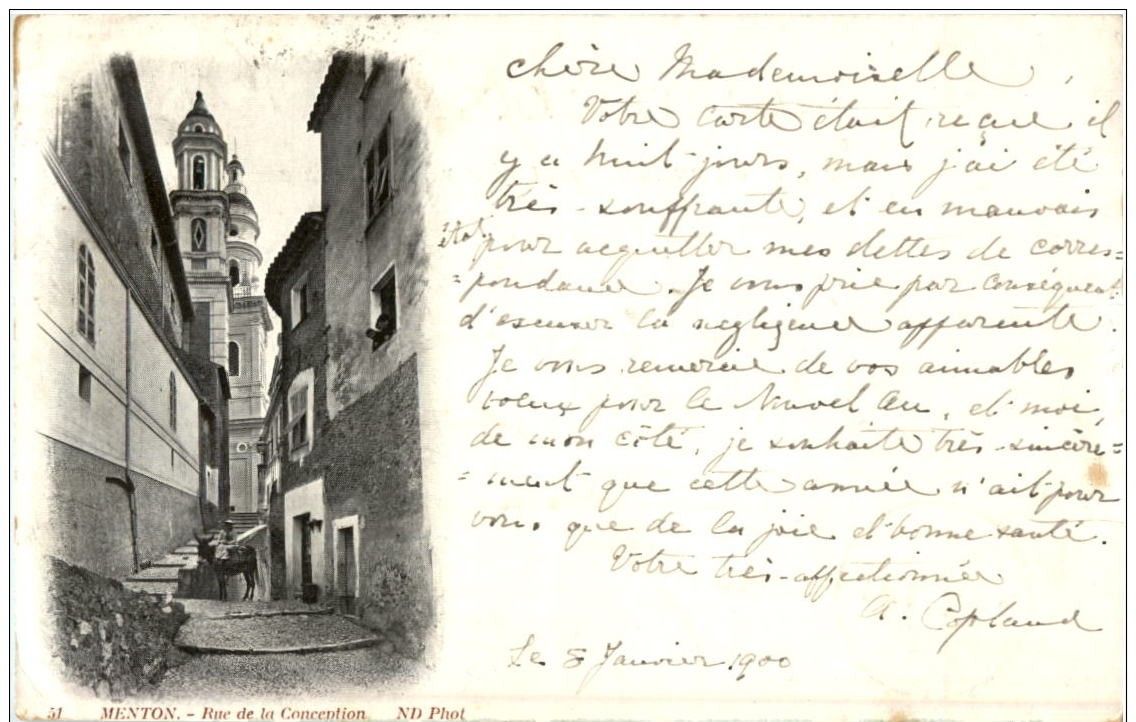 Chère Mademoiselle,
Votre carte était reçue il
y a huit-jours, mais j'ai été
très-souffrante, et en mauvais
état pour acquitter mes dettes de corres=
=pondance. Je vous prie par conséquent
d'excuser la negligence apparente.
Je vous remercie de vos aimables
voeux pour le Nouvel An, et moi,
de mon côté, je souhaite très-sincère=
=ment que cette année n'ait pour
vous que de la joie et bonne santé.
Votre très-affectionnée
A. Copland
Le 8 Janvier 1900
51 MENTON. - Rue de la Conception ND Phot